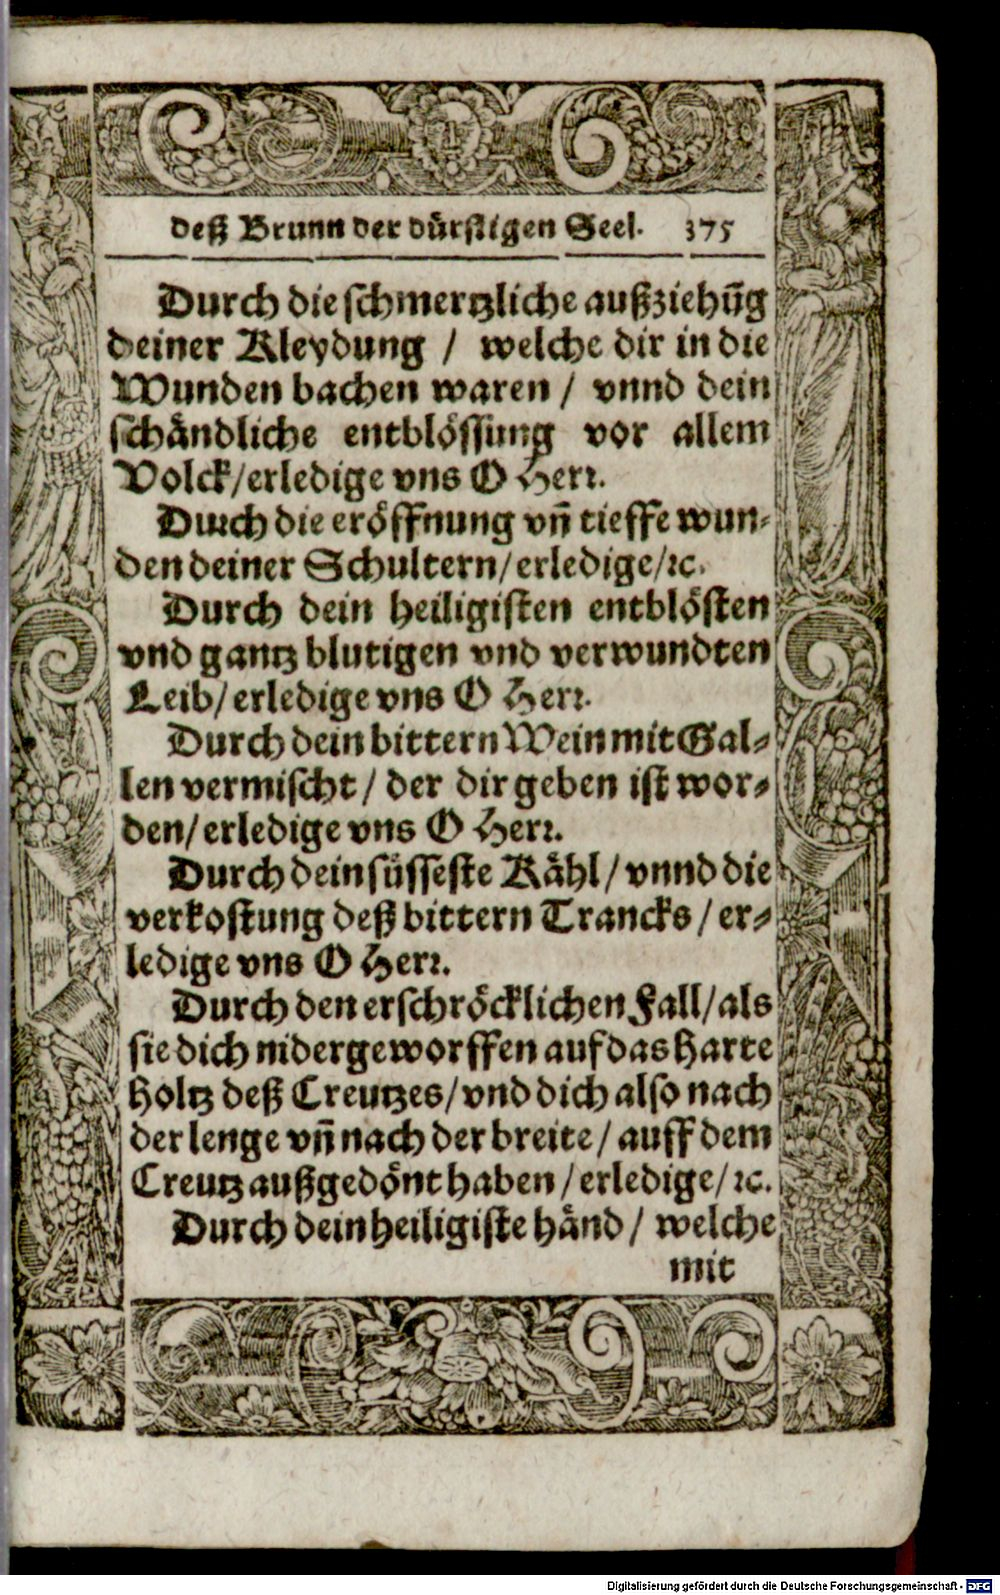 deß Brunn der dürstigen Seel. 375
Durch die schmertzliche außziehūg
deiner Kleydung / welche dir in die
Wunden bachen waren / vnnd dein
schändliche entblössung vor allem
Volck/erledige vns O Herr.
Durch die eröffnung vn̄ tieffe wun-
den deiner Schultern/erledige/ꝛc.
Durch dein heiligisten entblösten
vnd gantz blutigen vnd verwundten
Leib/erledige vns O Herr.
Durch dein bittern Wein mit Gal-
len vermischt / der dir geben ist wor-
den/erledige vns O Herr.
Durch dein süsseste Kähl / vnnd die
verkostung deß bittern Trancks / er-
ledige vns O Herr.
Durch den erschröcklichen Fall/als
sie dich nidergeworffen auf das harte
holtz deß Creutzes/vnd dich also nach
der lenge vn̄ nach der breite / auff dem
Creutz außgedönt haben / erledige/ ꝛc.
Durch dein heiligiste händ / welche
mit
Digitalisierung gefördert durch die Deutsche Forschungsgemeinschaft - DFG